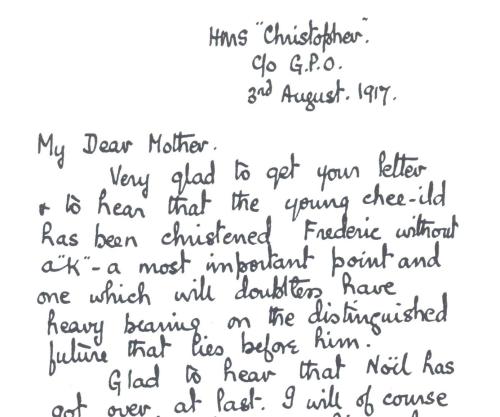 HMS "Christopher".
c/o G.P.O.
3rd August. 1917.
My Dear Mother.
Very glad to get your letter
& to hear that the young chee-ild
has been christened Frederic without
a "K" - a most important point and
one which will doubtless have
heavy bearing on the distinguished
future that lies before him.
Glad to hear that Nöel has
got over at last. I will of course